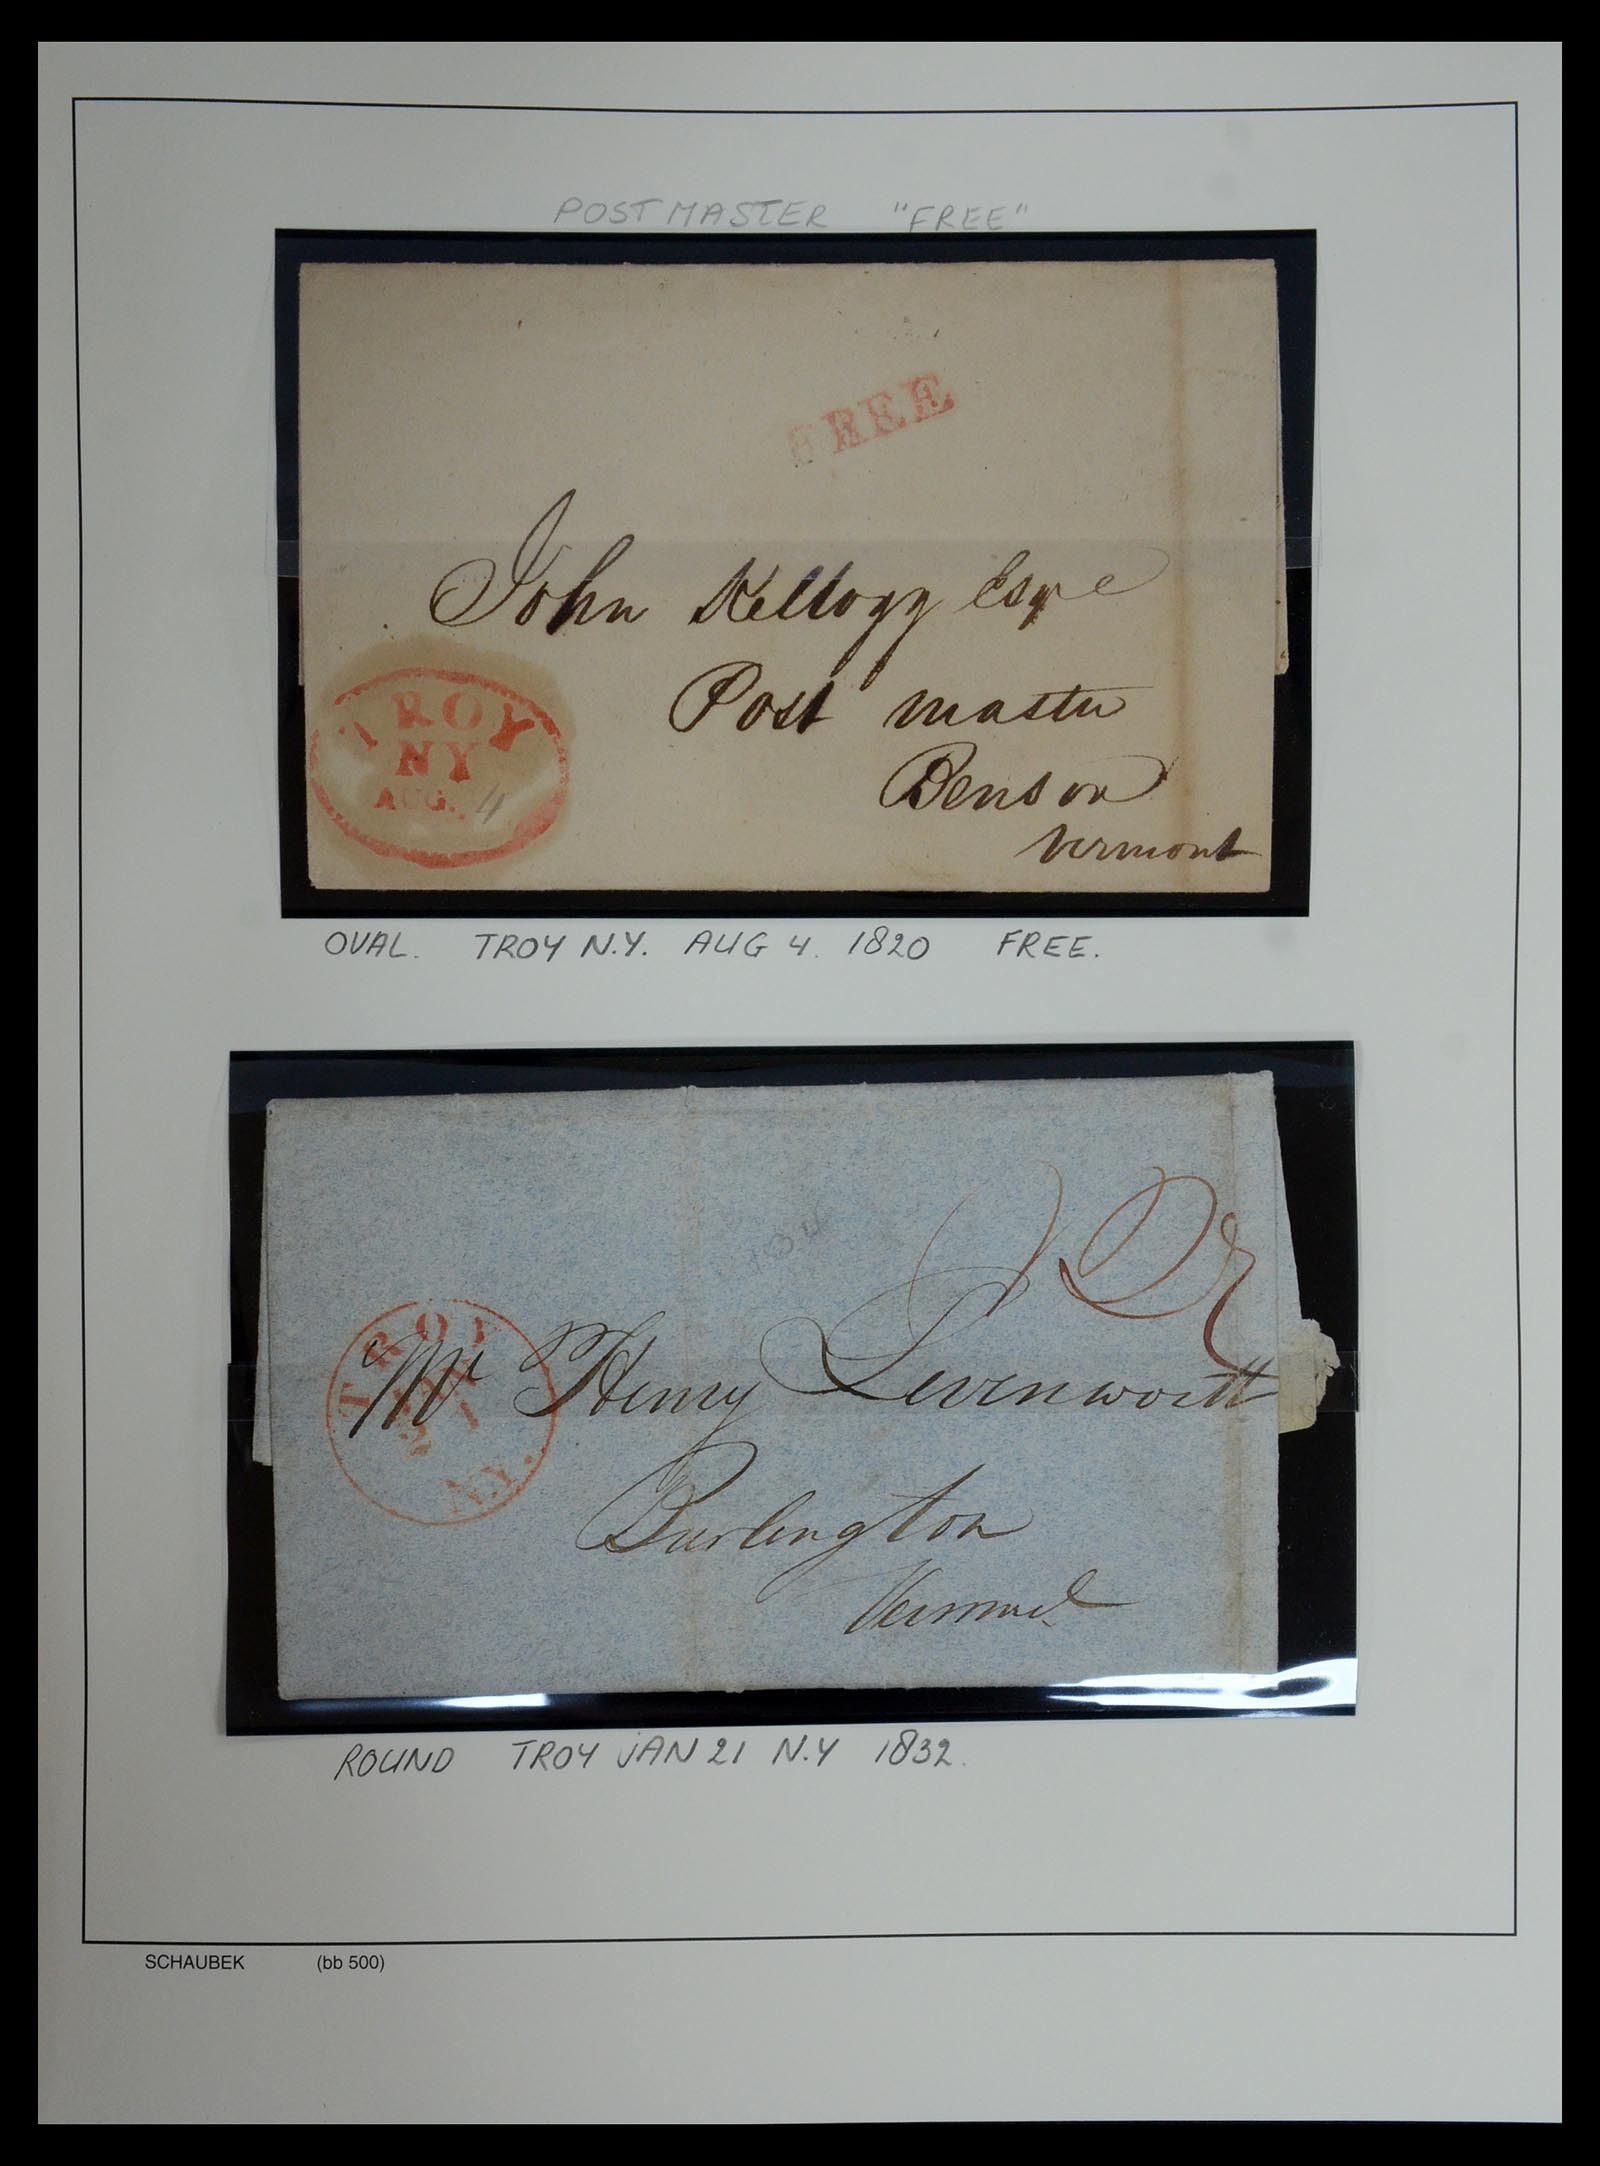 POSTMASTER "FREE"
FREE
John Kellogg Esqre
Post master
Benson
Vermont
TROY
NY
AUG. 4
OVAL. TROY N.Y. AUG 4. 1820 FREE.
TROY
JAN
21
N.Y.
Mr Henry Levenworth
Burlington
Vermont
ROUND TROY JAN 21 N.Y 1832.
SCHAUBEK (bb 500)